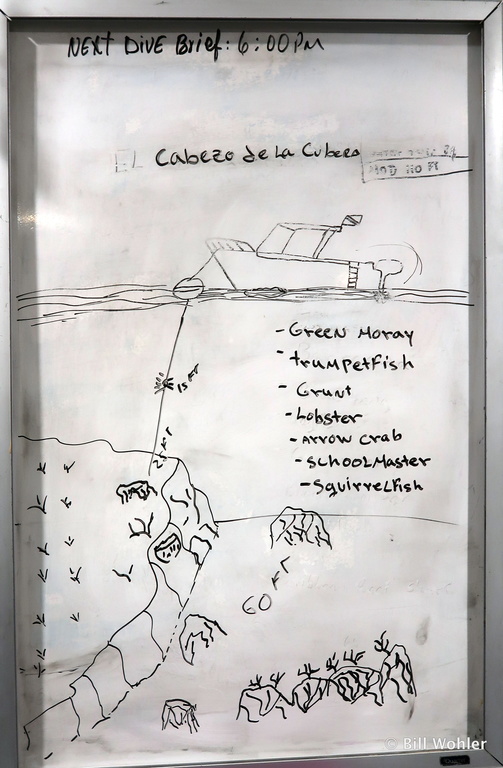 NEXT DIVE Brief: 6:00PM
EL Cabezo de La Cubera
MOD
- GREEN MORAY
- trumpetfish
- Grunt
- Lobster
- ARROW CRAB
- SCHOOLMASTER
- SquirreLFish
15 FT
25 FT
60 FT
© Bill Wohler